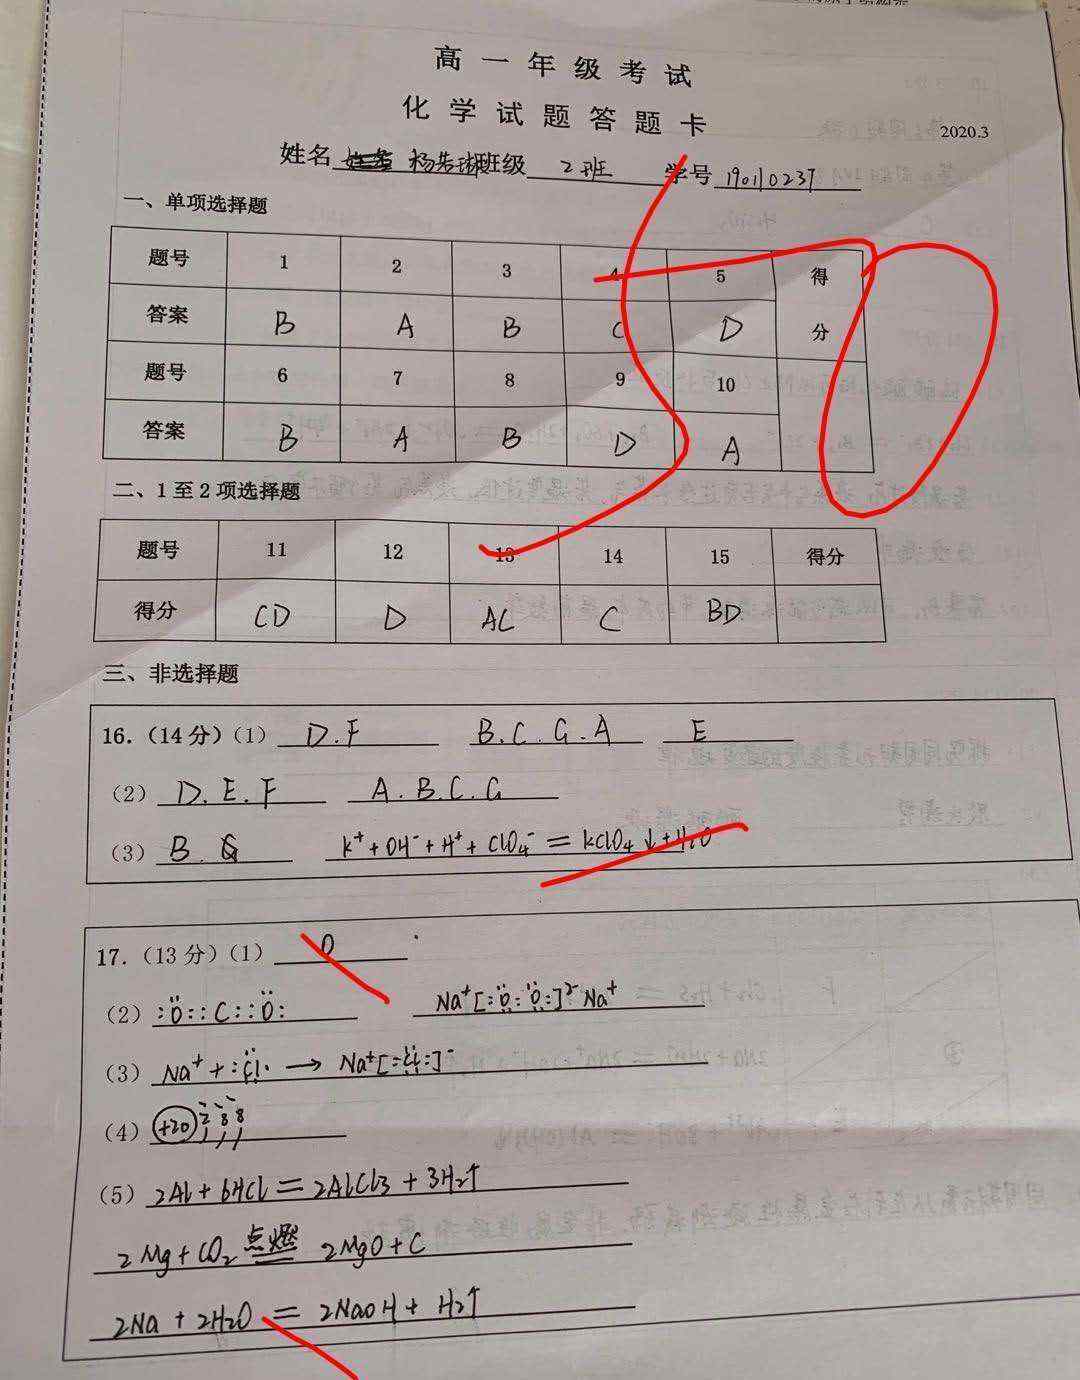 高一年级考试
化学试题答题卡
2020.3
姓名 班级 2班 学号 190110237
一、单项选择题
题号 1 2 3 4 5 得分
答案 B A B C D
题号 6 7 8 9 10
答案 B A B D A
二、1至2项选择题
题号 11 12 13 14 15 得分
得分 CD D AC C BD
三、非选择题
16.（14分）（1） D.F B.C.G.A E
（2） D.E.F A.B.C.G
（3） B. G K⁺+OH⁻+H⁺+ClO₄⁻=KClO₄↓+H₂O
17.（13分）（1） O
（2） :Ö::C::Ö: Na⁺[:Ö:Ö:]²⁻Na⁺
（3） Na⁺+:Cl· → Na⁺[:Cl:]⁻
（4） +20 2 8 8
（5） 2Al+6HCl=2AlCl3+3H₂↑
2Mg+CO₂ 点燃 2MgO+C
2Na+2H₂O=2NaOH+H₂↑